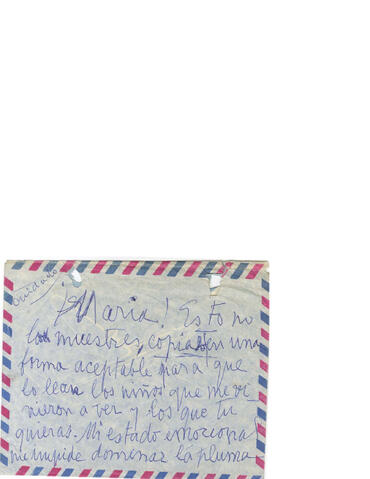 Cuidado
¡Maria! Esto no
lo muestres, copialo en una
forma aceptable para que
lo lean los niños que me vi
nieron a ver y los que tu
quieras. Mi estado emociona
me impide dominar la pluma